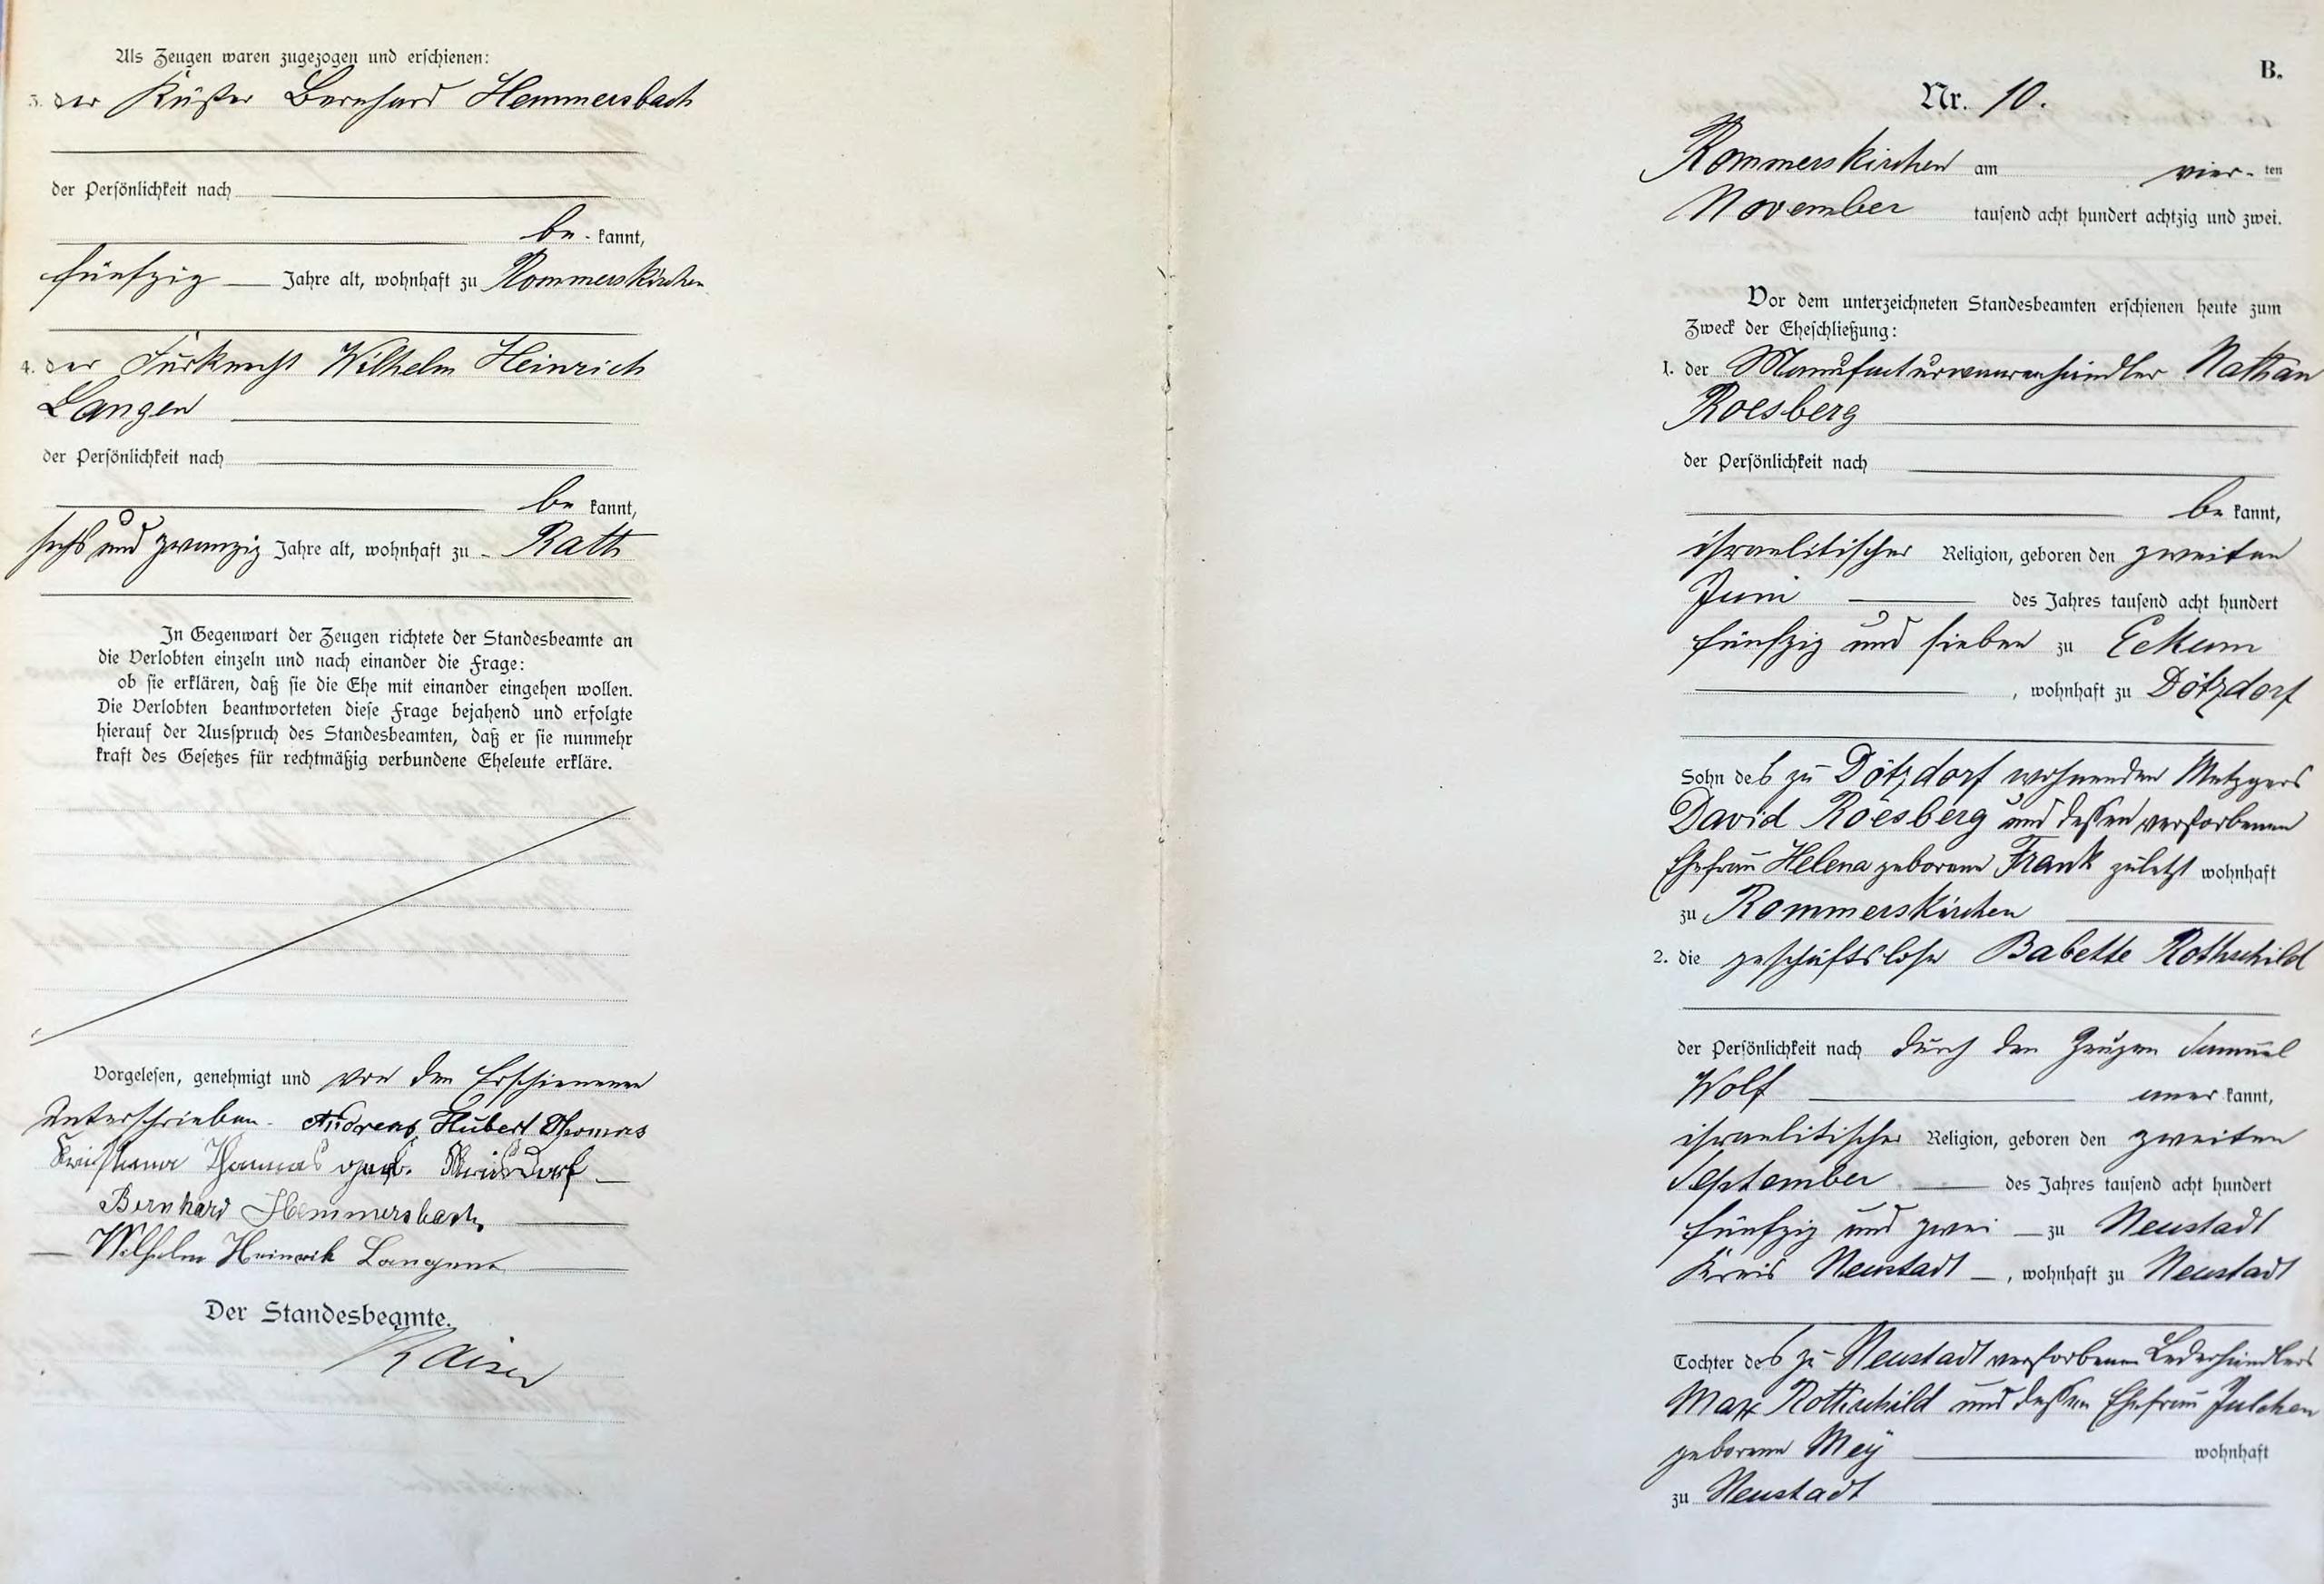 Als Zeugen waren zugezogen und erschienen:
3. der Küster Bernhard Hemmersbach
der Persönlichkeit nach
be- kannt,
fünfzig Jahre alt, wohnhaft zu Rommerskirchen
4. der Wilhelm Heinrich
Langen
der Persönlichkeit nach
be kannt,
sechs und zwanzig Jahre alt, wohnhaft zu Rath
In Gegenwart der Zeugen richtete der Standesbeamte an
die Verlobten einzeln und nach einander die Frage:
ob sie erklären, daß sie die Ehe mit einander eingehen wollen.
Die Verlobten beantworteten diese Frage bejahend und erfolgte
hierauf der Ausspruch des Standesbeamten, daß er sie nunmehr
kraft des Gesetzes für rechtmäßig verbundene Eheleute erkläre.
Vorgelesen, genehmigt und von den Erschienenen
unterschrieben. Andreas Hubert Thomas
Thomas geb.
Bernhard Hemmersbach
Wilhelm Heinrich Langen
Der Standesbeamte.
Kaiser
B.
Nr. 10.
Rommerskirchen am vier- ten
November tausend acht hundert achtzig und zwei.
Vor dem unterzeichneten Standesbeamten erschienen heute zum
Zweck der Eheschließung:
1. der Manufacturwaarenhändler Nathan
Roesberg
der Persönlichkeit nach
be kannt,
israelitischer Religion, geboren den zweiten
Juni des Jahres tausend acht hundert
fünfzig und sieben zu Eckum
, wohnhaft zu Dötzdorf
Sohn des zu Dötzdorf wohnenden Metzgers
David Roesberg und dessen verstorbenen
Ehefrau Helena geborene Frank zuletzt wohnhaft
zu Rommerskirchen
2. die geschäftslose Babette Rothschild
der Persönlichkeit nach durch den Zeugen Samuel
Wolf aner kannt,
israelitischer Religion, geboren den zweiten
September des Jahres tausend acht hundert
fünfzig und zwei zu Neustadt
Kreis Neustadt , wohnhaft zu Neustadt
Tochter des zu Neustadt verstorbenen Lederhändlers
Max Rothschild und dessen Ehefrau Julchen
geborene Mey wohnhaft
zu Neustadt